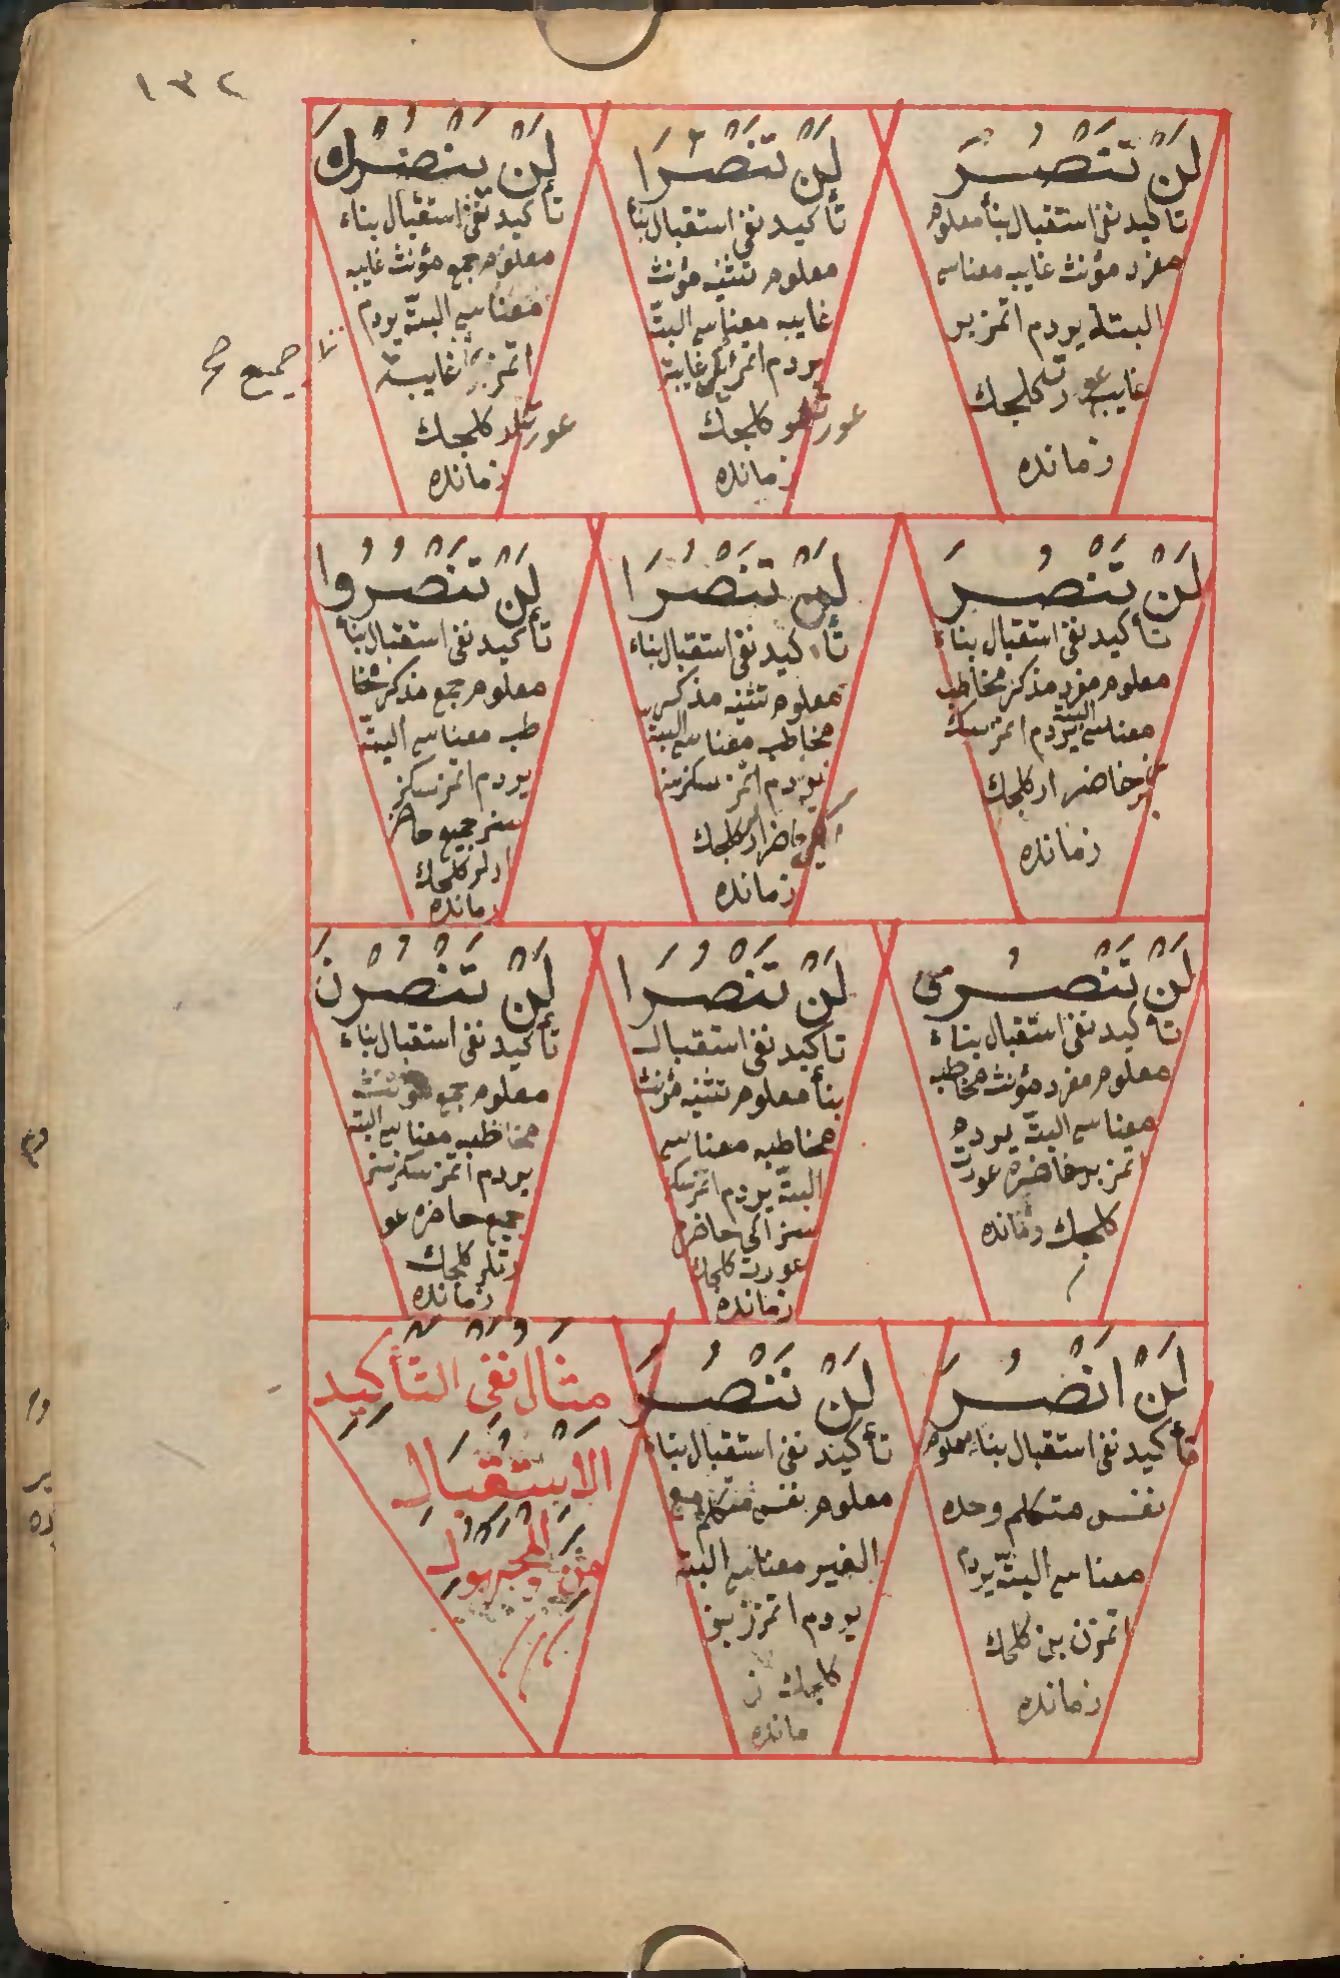 ١٣٢
لَنْ تَنْصُرَ
تأكيد نفى استقبال بنأ معلوم
مفرد مؤنث غايب معناسى
البتة يردم اتمز بر
غايب عورت كلجك
زمانده
لَنْ تَنْصُرَا
تأكيد نفى استقبال بنأ
معلوم تثنيه مؤنث
غايبه معناسى البتّه
يردم اتمز ايكى غايبة
عورتلر كلجك
زمانده
لَنْ ينصُرْنَ
تأكيد نفى استقبال بناء
معلوم جمع مؤنث غايبه
معناسى البتّه يردم
اتمز غايبة
عورتلر كلجك
زمانده
جميع صح
لَنْ تَنْصُرَ
تأكيد نفى استقبال بناء
معلوم مفرد مذكر مخاطب
معناسى البتة يردم اتمزسك
بر حاضر ار كلجك
زمانده
لَنْ تَنْصُرَا
تأكيد نفى استقبال بناء
معلوم تثنيه مذكر
مخاطب معناسى البتة
يردم اتمزسكز سز
ايكى حاضر ار كلجك
زمانده
لَنْ تَنْصُرُوا
تأكيد نفى استقبال بنأ
معلوم جمع مذكر مخا
طب معناسى البتّه
يردم اتمزسكز
سز جميع حاضر
ارلر كلجك
زمانده
لَنْ تَنْصُرى
تأكيد نفى استقبال بناء
معلوم مفرد مؤنث مخاطبه
معناسى البتّه يردم
اتمز بر حاضره عورت
كلجك زمانده
لَنْ تَنْصُرَا
تأكيد نفى استقبال
بنأ معلوم تثنيه مؤنث
مخاطبه معناسى
البتّه يردم اتمزسكز
سز ايكى حاضره
عورت كلجك
زمانده
لَنْ تَنْصُرْنَ
تأكيد نفى استقبال بناء
معلوم جمع مؤنث
مخاطبه معناسى البته
يردم اتمزسكز سز
جميع حاضره عو
رتلر كلجك
زمانده
لَنْ اَنْصُرَ
تأكيد نفى استقبال بناء معلوم
نفس متكلم وحده
معناسى البتّه يردم
اتمزن بن كلجك
زمانده
لَنْ نَنْصُرَ
تأكيد نفى استقبال بناء
معلوم نفس متكلم مع
الغير معناسى البته
يردم اتمزز بز
كلجك ز
مانده
مِثَالُ نَفْىِ التَّأكِيدِ
الاِسْتِقْبَالِ
مِنَ الْمَجْهُولِ